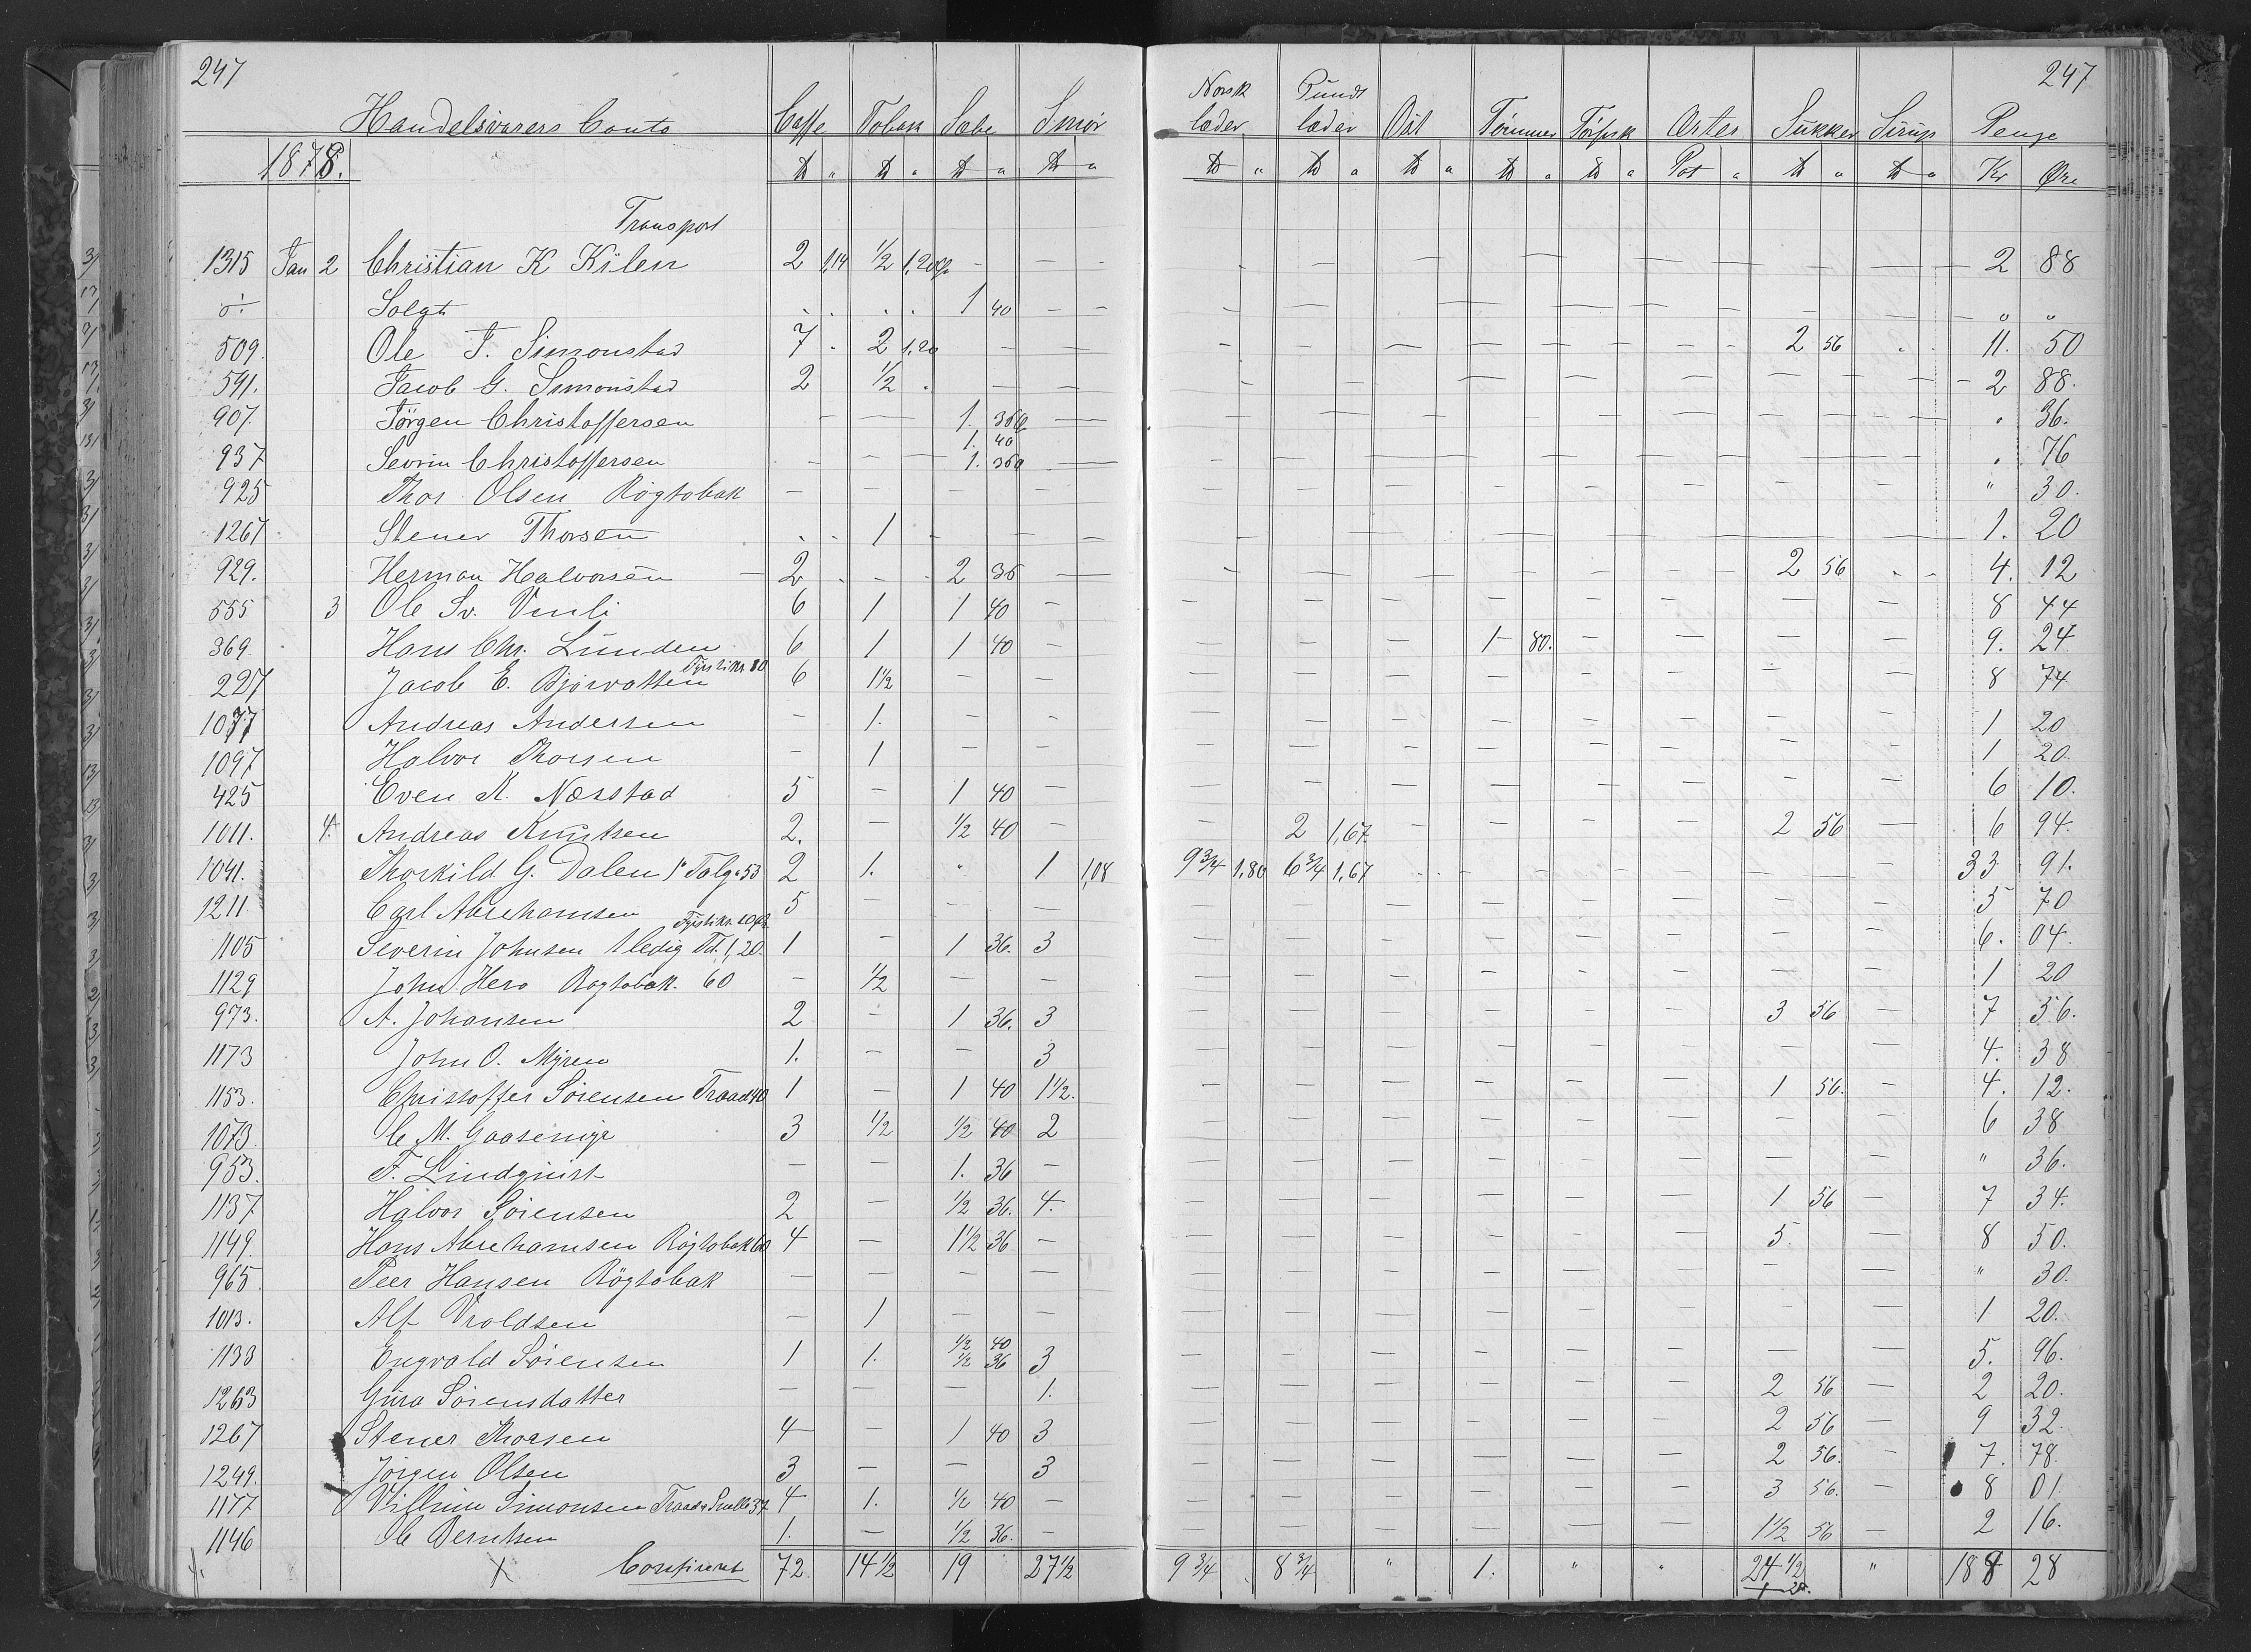 247 247
Handelsvarers Conto Caffe Tobak Sæbe Smør Norsk læder Pundt læder Ost Tømmer Tørfisk Erter Sukker Sirup Penge
1878. ℔ " ℔ " ℔ " ℔ " ℔ " ℔ " ℔ " ℔ " ℔ " Pot " ℔ " ℔ " Kr Øre
Transport
1315 Jan 2 Christian K Kilen 2 1,14 1/2 1,20 - - - - - - - - - - 2 88
Solgt . . . . 1 40 - - - - - - - - " "
509. Ole T. Simonstad 7 - 2 1,20 - - - - - - - - 2 56 . 11. 50
591. Jacob G. Simonstad 2 1/2 . - - - - - - - - - - 2 88.
907. Jörgen Christoffersen - - 1. 36 - - - - - - - - - " 36.
1. 40
937 Sevrin Christoffersen - - - 1. 36 - - - - - - - - " 76
925 Thor Olsen Rögtobak - - - - - - - - - - - - " 30.
1267 Stener Thorsen - 1 - - - - - - - - - - 1. 20
929. Herman Halvorsen - 2 - - 2 36 - - - - - - - 2 56 - 4. 12
555 3 Ole Sv. Vinli 6 1 1 40 - - - - - - - - - 8 44
369 Hans Chr. Lunden 6 1 1 40 - - - - 1 80. - - - - 9. 24
227 Jacob E. Bjorvatten 10 6 1 1/2 - - - - - - - - - - 8 74
1077 Andreas Andersen - 1. - - - - - - - - - - 1 20
1097 Halvor Thorsen - 1 - - - - - - - - - - 1 20.
425 Even K. Næsstad 5 - 1 40 - - - - - - - - - 6 10.
1011. 4. Andreas Knutsen 2. - 1/2 40 - - 2 1,67 - - - - 2 56 - 6 94.
1041. Thorkild G. Dalen 1 Talg 53 2 1. " 1 1,08 9 3/4 1,80 6 3/4 1,67 - - - - - - 33 91.
1211 Carl Abrehamsen 5 - - - - - - - - - - - 5 70
1105 Severin Johnsen 1 ledig Td. 1,20. 1 - 1 36. 3 - - - - - - - - 6. 04.
1129 John Hero Rogtobak. 60 - 1/2 - - - - - - - - - - 1 20
973. A. Johansen 2 - 1 36. 3 - - - - - - 3 56 - 7 56.
1173 John O. Myren 1. - - 3 - - - - - - - - 4. 38
1153. Christoffer Sörensen Traad 40 1 - 1 40 1 1/2. - - - - - - 1 56. - 4. 12.
1073 C M. Gaasemyr 3 1/2 1/2 40 2 - - - - - - - - 6 38
953. F. Lindquist - - 1. 36 - - - - - - - - - " 36.
1137 Halvor Sörensen 2 - 1/2 36. 4. - - - - - - 1 56 - 7 34.
1149. Hans Abrehamsen Rögtobak 60 4 - 1 1/2 36 - - - - - - - 5. - 8 50.
965. Peer Hansen Rögtobak - - - - - - - - - - - - " 30.
1013. Alf Vroldsen - 1 - - - - - - - - - - 1 20.
1133 Engvald Sörensen 1 1. 1/2 40 3 - - - - - - - - 5. 96.
1/2 36
1263 Gura Sörensdatter - - - 1. - - - - - - 2 56 - 2 20.
1267 Stener Thorsen 4 - 1 40 3 - - - - - - 2 56 - 9 32.
1249. Jörgen Olsen 3 - - 3 - - - - - - 2 56. - 7. 78.
1177 Vilhim Simonsen Traad 37 4 1. 1/2 40 - - - - - - - 3 56. - 8 01.
1146 O Berntsen 1. - 1/2 36. - - - - - - - 1 1/2 56 - 2 16.
X 72 14 1/2 19 27 1/2 9 3/4 8 3/4 " 1. " " 24 1/2 " 188 28